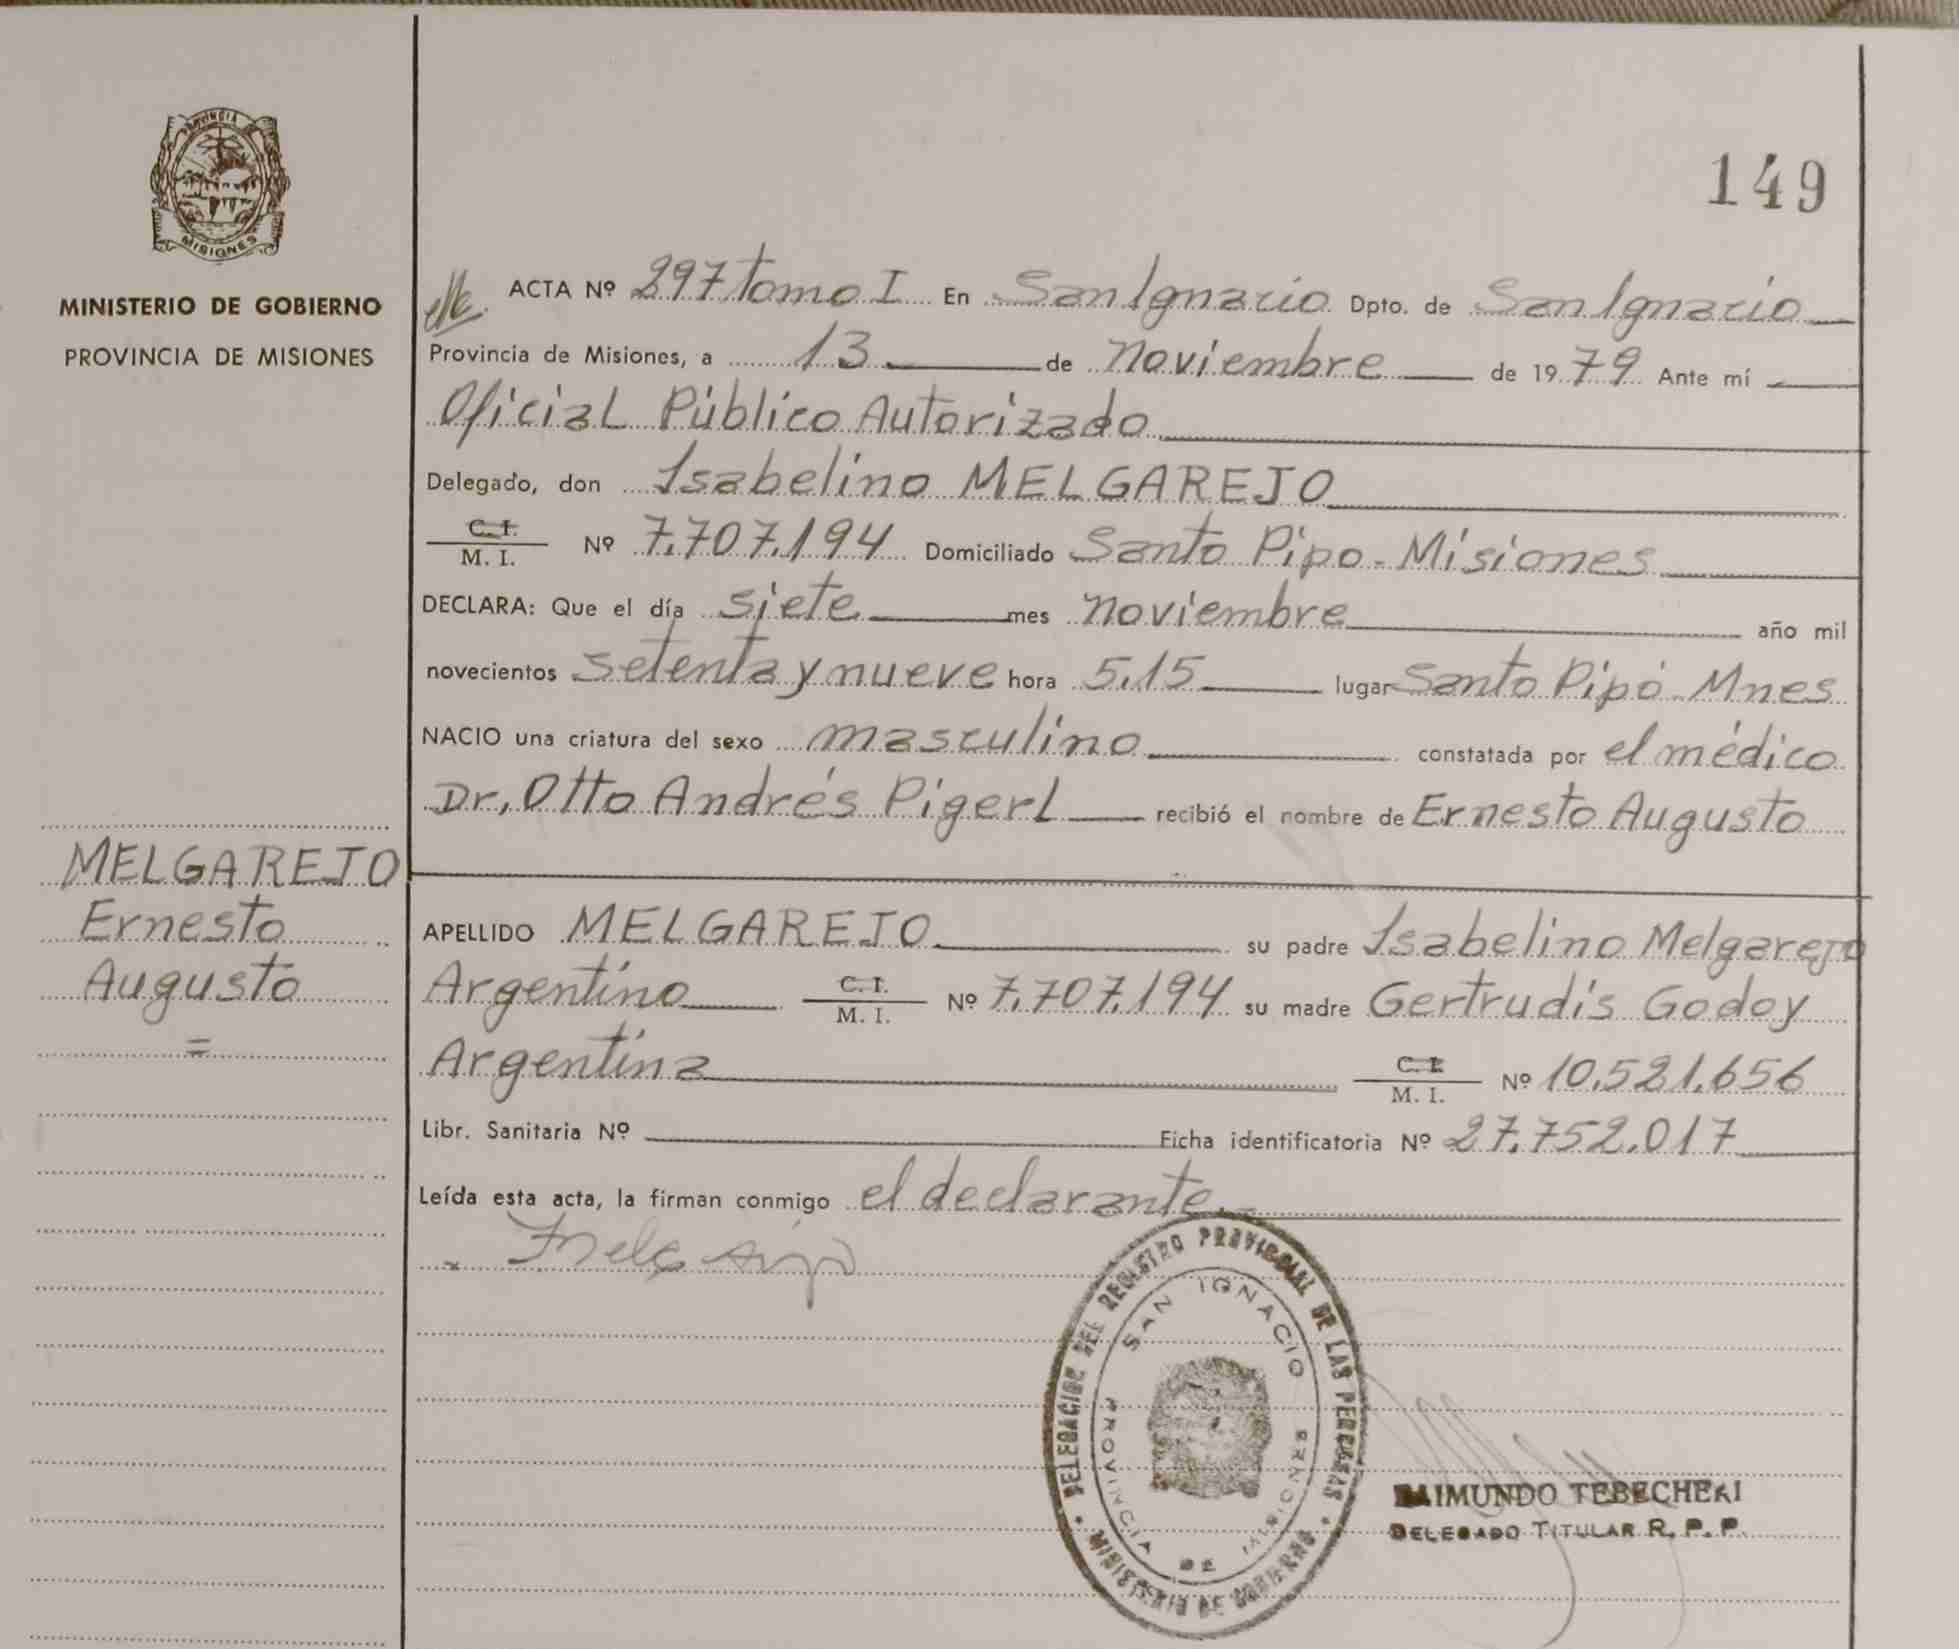 PROVINCIA DE
MISIONES
MINISTERIO DE GOBIERNO
PROVINCIA DE MISIONES
149
ACTA Nº 297 tomo I En San Ignacio Dpto. de San Ignacio
Provincia de Misiones, a 13 de noviembre de 1979 Ante mí
Oficial Público Autorizado
Delegado, don Isabelino MELGAREJO
C. I.
M. I. Nº 7.707.194 Domiciliado Santo Pipo - Misiones
DECLARA: Que el día siete mes noviembre año mil
novecientos setenta y nueve hora 5.15 lugar Santo Pipó - Mnes
NACIO una criatura del sexo masculino constatada por el médico
Dr, Otto Andrés Pigerl recibió el nombre de Ernesto Augusto
MELGAREJO
Ernesto
Augusto
=
APELLIDO MELGAREJO su padre Isabelino Melgarejo
Argentino C. I.
M. I. Nº 7.707.194 su madre Gertrudis Godoy
Argentina C. I.
M. I. Nº 10.521.656
Libr. Sanitaria Nº Ficha identificatoria Nº 27.752.017
Leída esta acta, la firman conmigo el declarante.-
DELEGACION DEL REGISTRO PROVINCIAL DE LAS PERSONAS
SAN IGNACIO
PROVINCIA DE MISIONES
MINISTERIO DE GOBIERNO
RAIMUNDO TEBECHERI
DELEGADO TITULAR R. P. P.